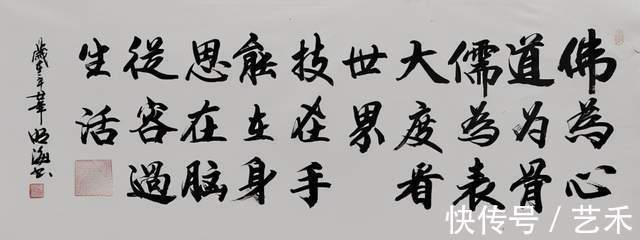 佛為心
道为骨
儒為表
大度看
世界
技在手
能在身
思在脑
從容過
生活
快传号 / 艺禾